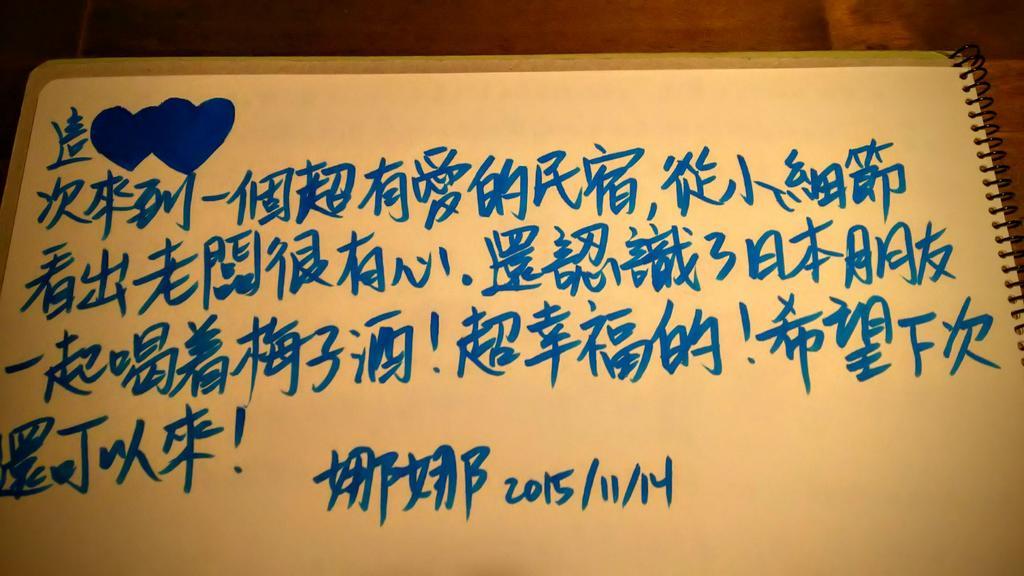 這
次來到一個超有愛的民宿,從小細節
看出老闆很有心.還認識了日本朋友
一起喝着梅子酒!超幸福的!希望下次
還可以來!
娜娜 2015/11/14